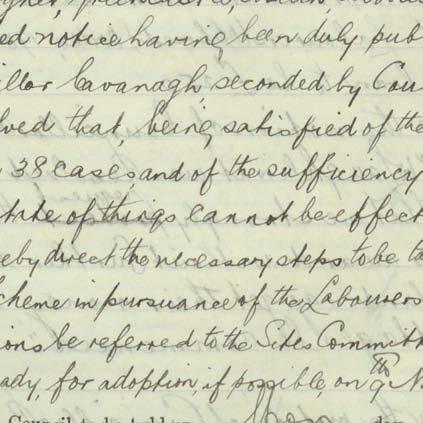 ed notice having been duly pub
illor Cavanagh, seconded by Cou
lved that, being satisfied of the
38 cases, and of the sufficiency
state of things cannot be effect
eby direct the necessary steps to be ta
cheme in pursuance of the Labourers
ions be referred to the Sites Committ
ady, for adoption, if possible, on 9th N